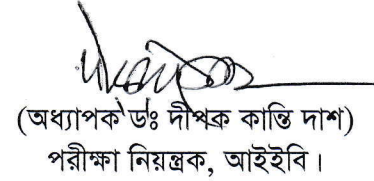 (অধ্যাপক ডঃ দীপক কান্তি দাশ)
পরীক্ষা নিয়ন্ত্রক, আইইবি।